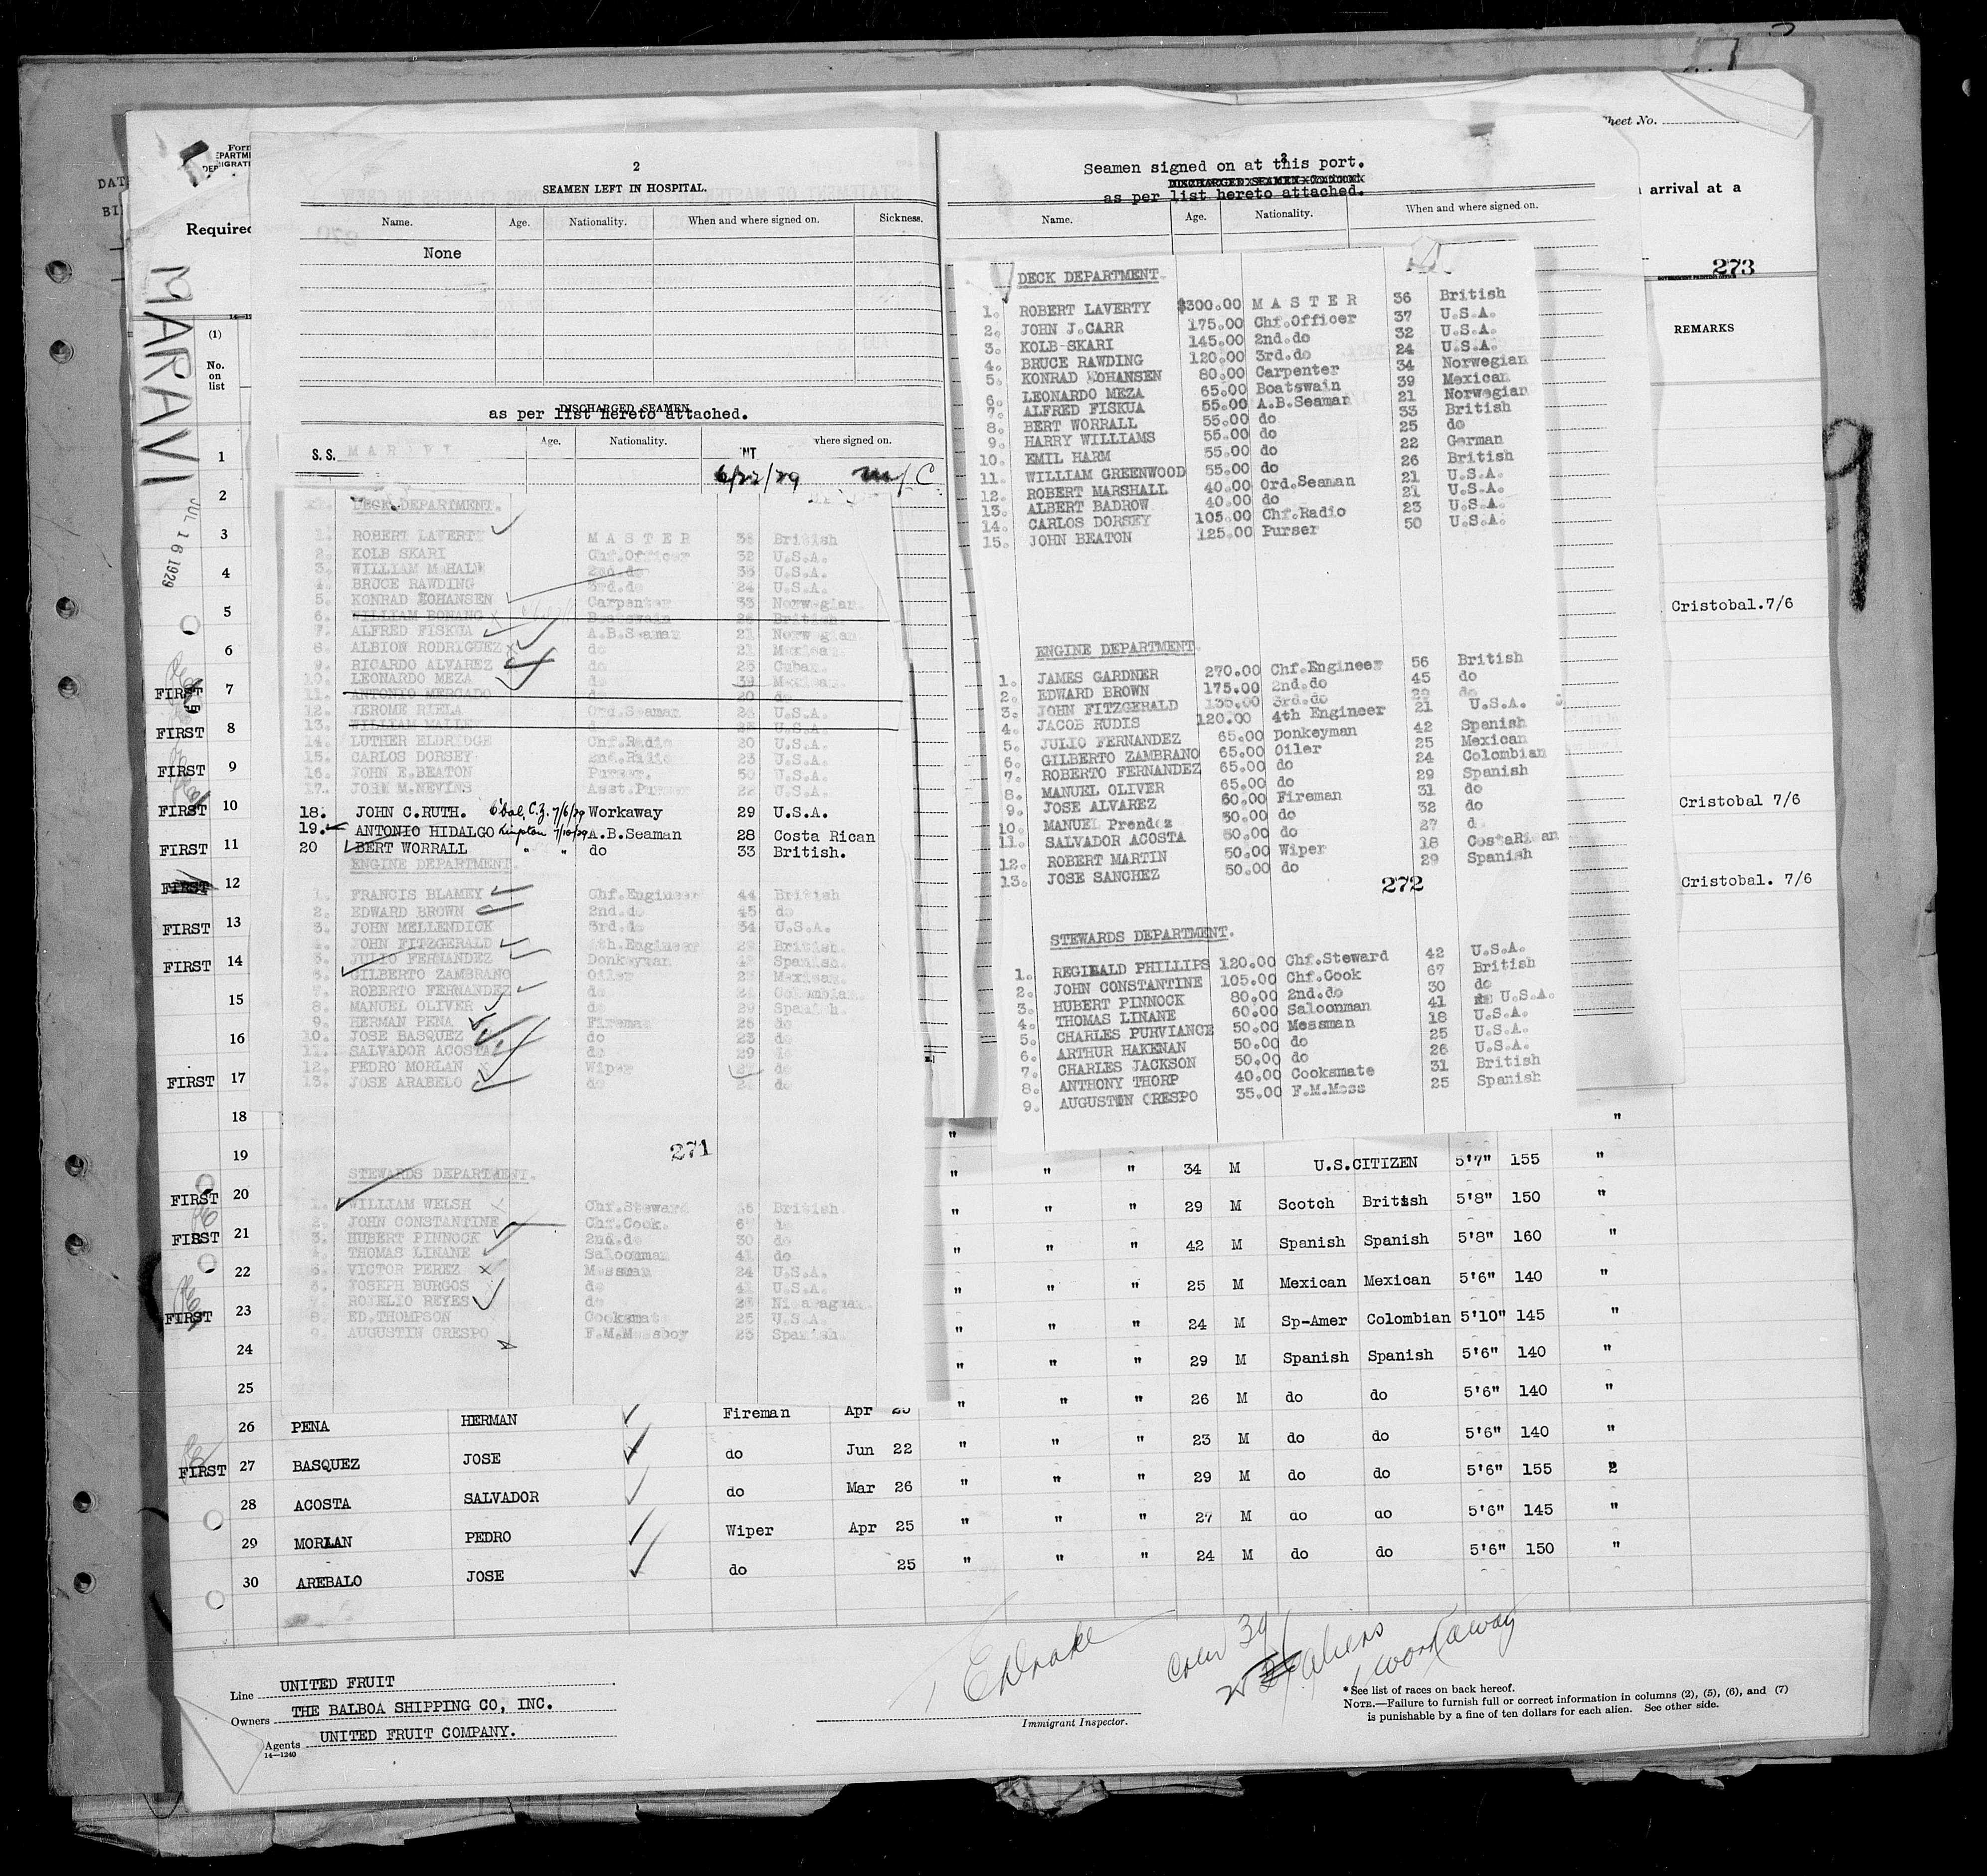 Sheet No.
arrival at a
273
REMARKS
Cristobal.7/6
Cristobal 7/6
Cristobal. 7/6
Required
MARAVI
JUL 16 1929
(1)
No.
on
list
2
SEAMEN LEFT IN HOSPITAL.
Name. Age. Nationality. When and where signed on. Sickness.
None
DISCHARGED SEAMEN
as per list hereto attached.
Age. Nationality. where signed on.
S. S. MARAVI
6/22/29
DECK DEPARTMENT.
1. ROBERT LAVERTY MASTER 36 British
2. KOLB SKARI Chf.Officer 32 U.S.A.
3. WILLIAM M HALW 2nd.do 35 U.S.A.
4. BRUCE RAWDING 3rd.do 24 U.S.A.
5. KONRAD JOHANSEN Carpenter 33 Norwegian.
6. WILLIAM BONANG Boatswain 26 British.
7. ALFRED FISKUA A.B.Seaman 21 Norwegian.
8. ALBION RODRIGUEZ do 21 Mexican.
9. RICARDO ALVAREZ do 23 Cuban.
10. LEONARDO MEZA do 39 Mexican.
11. ANTONIO MERCADO do 20 do
12. JEROME RIELA Ord.Seaman 24 U.S.A.
13. WILLIAM MALLEY U.S.A.
14. LUTHER ELDRIDGE Chf.Radio 20 U.S.A.
15. CARLOS DORSEY 2nd.Radio 23 U.S.A.
16. JOHN E.BEATON Purser. 50 U.S.A.
17. JOHN M.NEVINS Asst.Purser 22 U.S.A.
18. JOHN C.RUTH. C'bal, C.Z. 7/6/29 Workaway 29 U.S.A.
19. ANTONIO HIDALGO Kingston 7/10/29 A.B.Seaman 28 Costa Rican
20 BERT WORRALL " " do 33 British.
ENGINE DEPARTMENT.
1. FRANCIS BLAMEY Chf.Engineer 44 British
2. EDWARD BROWN 2nd.do 45 do
3. JOHN MELLENDICK 3rd.do 34 U.S.A.
4. JOHN FITZGERALD 4th.Engineer 29 British.
5. JULIO FERNANDEZ Donkeyman 42 Spanish.
6. GILBERTO ZAMBRANO Oiler 25 Mexican.
7. ROBERTO FERNANDEZ do 24 Colombian.
8. MANUEL OLIVER do 29 Spanish.
9. HERMAN PENA Fireman 26 do
10. JOSE BASQUEZ do 23 do
11. SALVADOR ACOSTA do 29 do
12. PEDRO MORLAN Wiper 27 do
13. JOSE ARABELO do 24 do
271
STEWARDS DEPARTMENT.
1. WILLIAM WELSH Chf.Steward 36 British.
2. JOHN CONSTANTINE Chf.Cook. 67 do
3. HUBERT PINNOCK 2nd.do 30 do
4. THOMAS LINANE Saloonman 41 do
5. VICTOR PEREZ Messman 24 U.S.A.
6. JOSEPH BURGOS do 42 U.S.A.
7. ROSELIO REYES do Nicaraguan.
8. ED.THOMPSON Cooksmate 25 U.S.A.
9. AUGUSTIN CRESPO F.M.Messboy 25 Spanish.
2
Seamen signed on at this port.
DISCHARGED SEAMEN
as per list hereto attached.
Name. Age. Nationality. When and where signed on.
DECK DEPARTMENT.
1. ROBERT LAVERTY $300.00 MASTER 36 British
2. JOHN J.CARR 175.00 Chf.Officer 37 U.S.A.
3. KOLB SKARI 145.00 2nd.do 32 U.S.A.
4. BRUCE RAWDING 120.00 3rd.do 24 U.S.A.
5. KONRAD JOHANSEN 80.00 Carpenter 34 Norwegian
6. LEONARDO MEZA 65.00 Boatswain 39 Mexican
7. ALFRED FISKUA 55.00 A.B.Seaman 21 Norwegian
8. BERT WORRALL 55.00 do 33 British
9. HARRY WILLIAMS 55.00 do 25 do
10. EMIL HARM 55.00 do 22 German
11. WILLIAM GREENWOOD 55.00 do 26 British
12. ROBERT MARSHALL 40.00 Ord.Seaman 21 U.S.A.
13. ALBERT BADROW 40.00 do 21 U.S.A.
14. CARLOS DORSEY 105.00 Chf.Radio 23 U.S.A.
15. JOHN BEATON 125.00 Purser 50 U.S.A.
ENGINE DEPARTMENT.
1. JAMES GARDNER 270.00 Chf.Engineer 56 British
2. EDWARD BROWN 175.00 2nd.do 45 do
3. JOHN FITZGERALD 135.00 3rd.do 29 do
4. JACOB RUDIS 120.00 4th Engineer 21 U.S.A.
5. JULIO FERNANDEZ 65.00 Donkeyman 42 Spanish
6. GILBERTO ZAMBRANO 65.00 Oiler 25 Mexican
7. ROBERTO FERNANDEZ 65.00 do 24 Colombian
8. MANUEL OLIVER 65.00 do 29 Spanish
9. JOSE ALVAREZ 60.00 Fireman 31 do
10. MANUEL Prendez do 32 do
11. SALVADOR ACOSTA do 27 d
12. ROBERT MARTIN 50.00 Wiper 18 CostaRican
13. JOSE SANCHEZ 50.00 do 29 Spanish
272
STEWARDS DEPARTMENT.
1. REGINALD PHILLIPS 120.00 Chf.Steward 42 U.S.A.
2. JOHN CONSTANTINE 105.00 Chf.Cook 67 British
3. HUBERT PINNOCK 80.00 2nd.do 30 do
4. THOMAS LINANE 60.00 Saloonman 41 U.S.A.
5. CHARLES PURVIANCE 50.00 Messman 18 U.S.A.
6. ARTHUR HAKENAN 50.00 do 25 U.S.A.
7. CHARLES JACKSON 50.00 do 26 U.S.A.
8. ANTHONY THORP 40.00 Cooksmate 31 British
9. AUGUSTIN CRESPO 35.00 F.M.Mess 25 Spanish
1
2
3
4
5
6
FIRST 7
FIRST 8
FIRST 9
FIRST 10
FIRST 11
FIRST 12
FIRST 13
FIRST 14
15
16
FIRST 17
18 " "
19 " " " 34 M U.S.CITIZEN 5'7" 155 "
FIRST 20 " " " 29 M Scotch British 5'8" 150 "
FIRST 21 " " " 42 M Spanish Spanish 5'8" 160 "
22 " " " 25 M Mexican Mexican 5'6" 140 "
FIRST 23 " " " 24 M Sp-Amer Colombian 5'10" 145 "
24 " " " 29 M Spanish Spanish 5'6" 140 "
25
26 PENA HERMAN Fireman Apr 25 " " " 26 M do do 5'6" 140 "
FIRST 27 BASQUEZ JOSE do Jun 22 " " " 23 M do do 5'6" 140 "
28 ACOSTA SALVADOR do Mar 26 " " " 29 M do do 5'6" 155 2
29 MORLAN PEDRO Wiper Apr 25 " " " 27 M do do 5'6" 145 "
30 AREBALO JOSE do 25 " " " 24 M do do 5'6" 150 "
Line UNITED FRUIT
Owners THE BALBOA SHIPPING CO, INC.
Agents UNITED FRUIT COMPANY.
14—1240
Immigrant Inspector.
Crew 39
aliens
1 workaway
*See list of races on back hereof.
NOTE.—Failure to furnish full or correct information in columns (2), (5), (6), and (7)
is punishable by a fine of ten dollars for each alien. See other side.